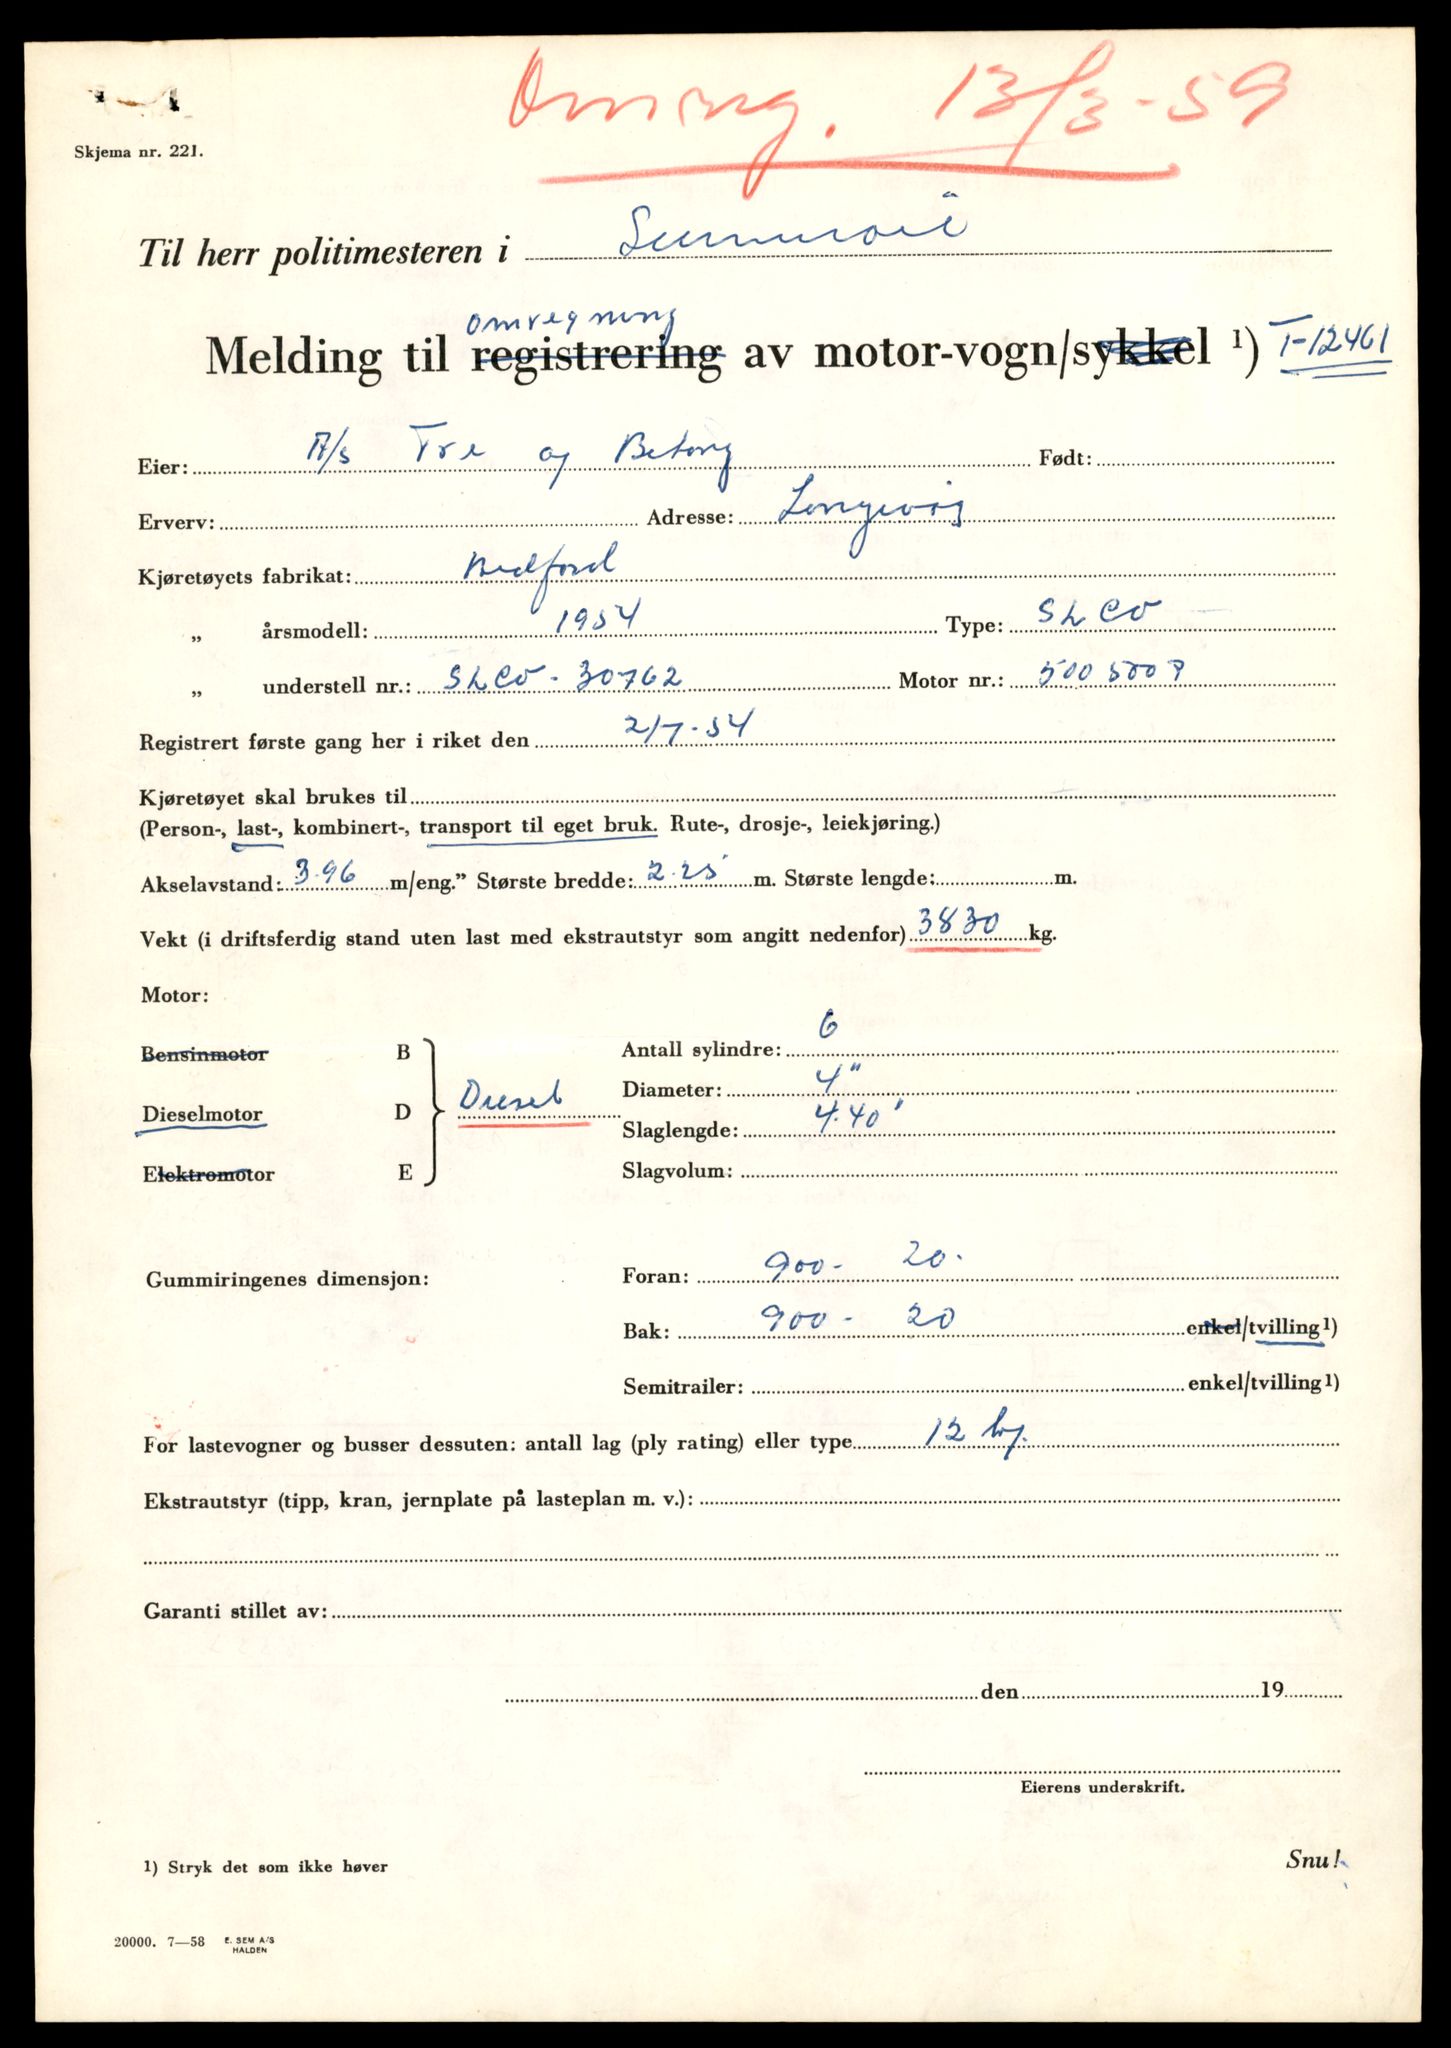 Omreg. 13/3-59
Skjema nr. 221.
Til herr politimesteren i Sunnmøre
omregning
Melding til registrering av motor-vogn/sykkel ¹) T-12461
Eier: A/s Tre og Betong Født:
Erverv: Adresse: Langevåg
Kjøretøyets fabrikat: Bedford
„ årsmodell: 1954 Type: SLCO
„ understell nr.: SLCO - 30762 Motor nr.:
Registrert første gang her i riket den 2/7-54
Kjøretøyet skal brukes til
(Person-, last-, kombinert-, transport til eget bruk. Rute-, drosje-, leiekjøring.)
Akselavstand: 3.96 m/eng.” Største bredde: 2.25 m. Største lengde: m.
Vekt (i driftsferdig stand uten last med ekstrautstyr som angitt nedenfor) 3830 kg.
Motor:
Bensinmotor B
Dieselmotor D Diesel
Elektromotor E
Antall sylindre: 6
Diameter: 4"
Slaglengde: 4.40"
Slagvolum:
Gummiringenes dimensjon: Foran: 900- 20.
Bak: 900- 20 enkel/tvilling¹)
Semitrailer: enkel/tvilling¹)
For lastevogner og busser dessuten: antall lag (ply rating) eller type 12
Ekstrautstyr (tipp, kran, jernplate på lasteplan m. v.):
Garanti stillet av:
den 19
Eierens underskrift.
1) Stryk det som ikke høver
Snu!
20000. 7—58 E. SEM A/S
HALDEN